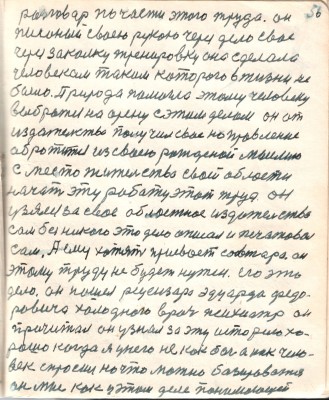 56
разговар по части этого труда. он
писоный своею рукою через дело свое
через закалку тренировку она сделала
человекам таким которого в жизни не
было. Природа помогла этому человеку
выбратся на арену с этим делом он от
издательства получил свое направление
обротится из своею рожденой мыслию
с место жительства своей области
начать эту работу этот труд он
взялся за свое областное издательство
сам без никого это дело описал и печатовал
сам, А ему хотят приписать соавтора. он
этому труду не будет нужен. его это
дело, он нашел рецензара эдуарда федо-
ровича холодного врач психиатр он
прочитал он узнал за эту историю хо-
рошо когда я у него не как бог а как чело-
век спросил на что можно базироватся
он мне как у этом деле понимающей